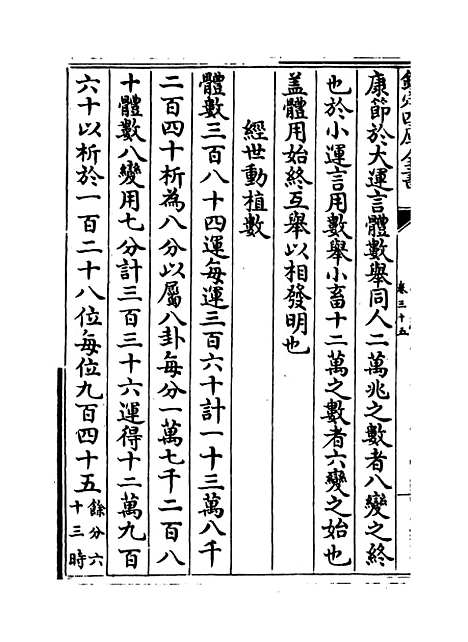 欽定四庫全書
卷三十五
康節於大運言體數舉同人二萬兆之數者八變之終
也於小運言用數舉小畜十二萬之數者六變之始也
盖體用始終互舉以相發明也
經世動植數
體數三百八十四運每運三百六十計一十三萬八千
二百四十析為八分以屬八卦每分一萬七千二百八
十體數八變用七分計三百三十六運得十二萬九百
六十以析於一百二十八位每位九百四十五餘分六十三時